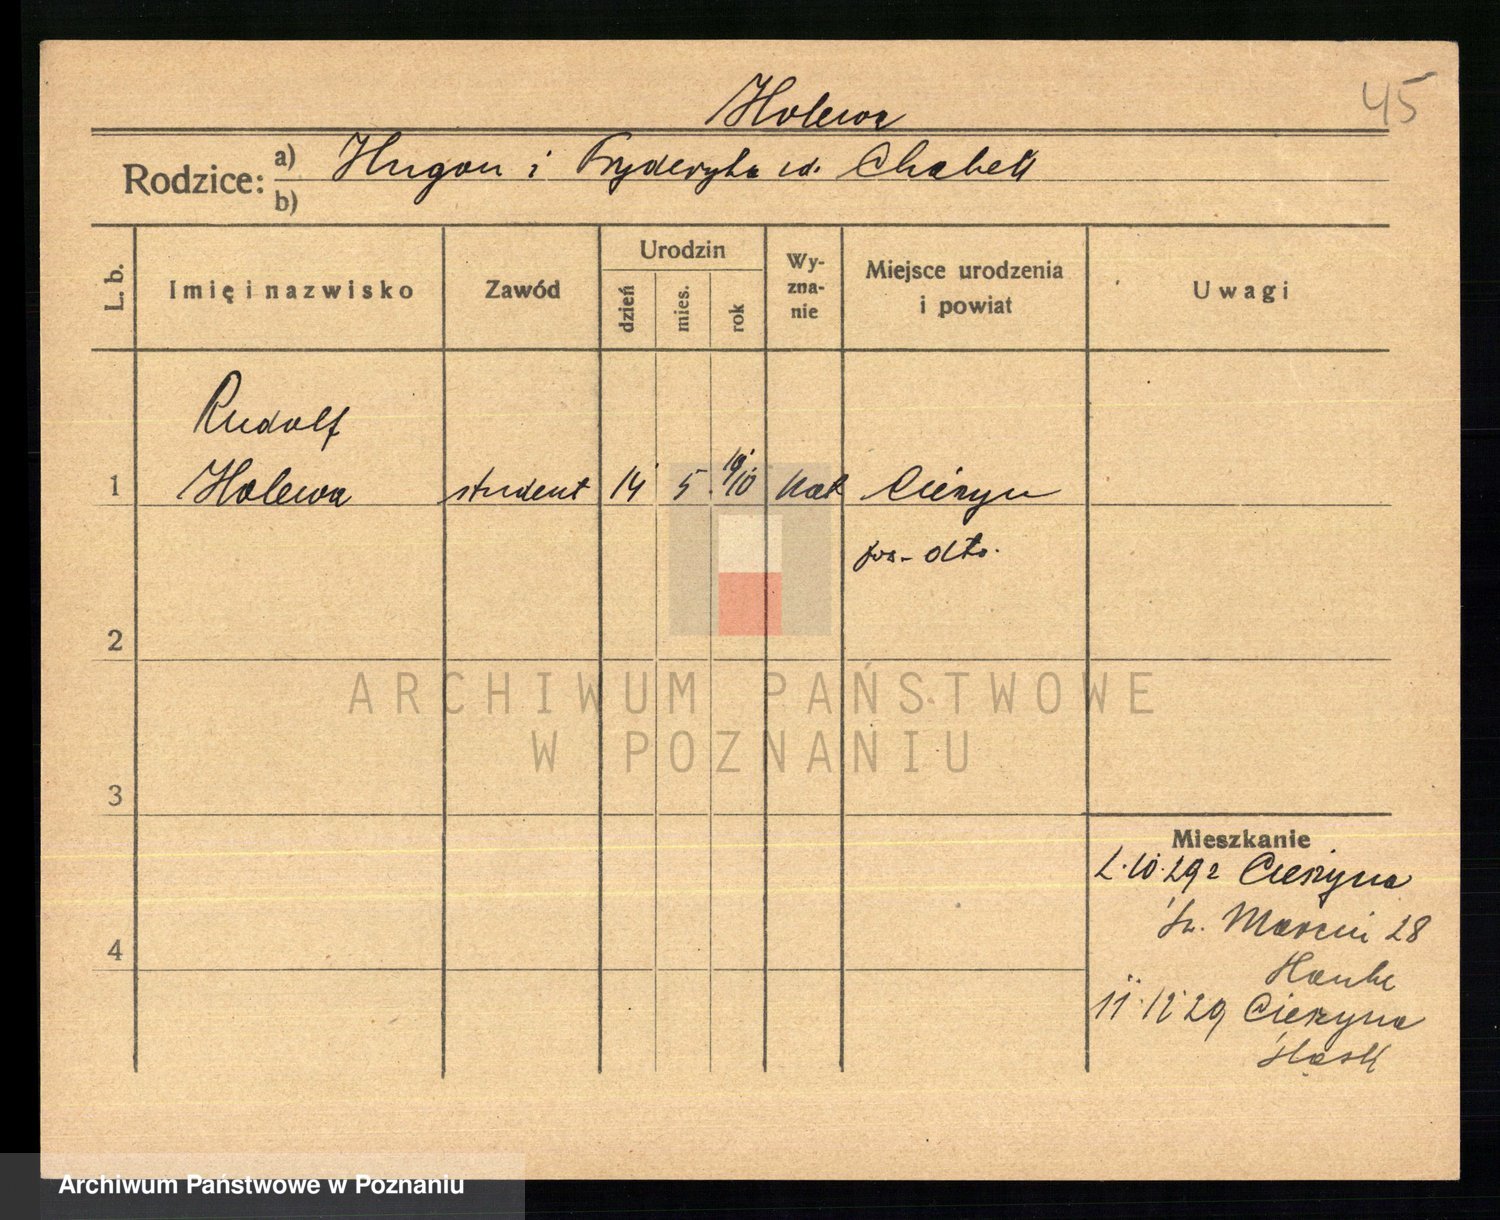 45
Holewa
Rodzice: a) Hugon i Fryderyka zd. Chabek
b)
L. b. Imię i nazwisko Zawód Urodzin dzień mies. rok Wyznanie Miejsce urodzenia i powiat Uwagi
Rudolf
1 Holewa student 14 5 1910 kat Cieszyn
pow- dto.
2
ARCHIWUM PAŃSTWOWE
W POZNANIU
3
Mieszkanie
2.10.29 z Cieszyna
Św. Marcin 28
4
11.12 29 Cieszyna
Śląsk
Archiwum Państwowe w Poznaniu